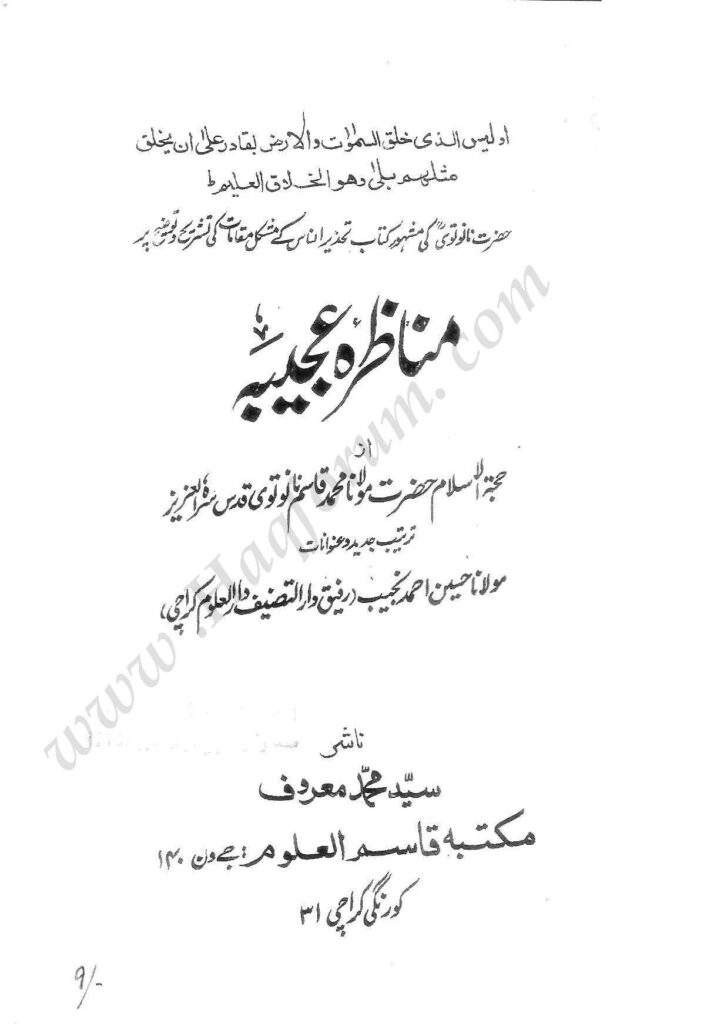 اولیس الذی خلق السمٰوات والارض بقادر علیٰ ان یخلق
مثلہم بلیٰ وھو الخلاق العلیم ط
حضرت نانوتویؒ کی مشہور کتاب تحذیر الناس کے مشکل مقامات کی تشریح و توضیح پر
مناظرہ عجیبہ
از
حجۃ الاسلام حضرت مولانا محمد قاسم نانوتوی قدس سرہ العزیز
ترتیب جدید و عنوانات
مولانا حسین احمد نجیب (رفیق دار التصنیف دار العلوم کراچی)
ناشر
سیّد محمّد معروف
مکتبہ قاسم العلوم : جے ون ۱۴۰
کورنگی کراچی ۳۱
۹/-
www.Haqforum.com